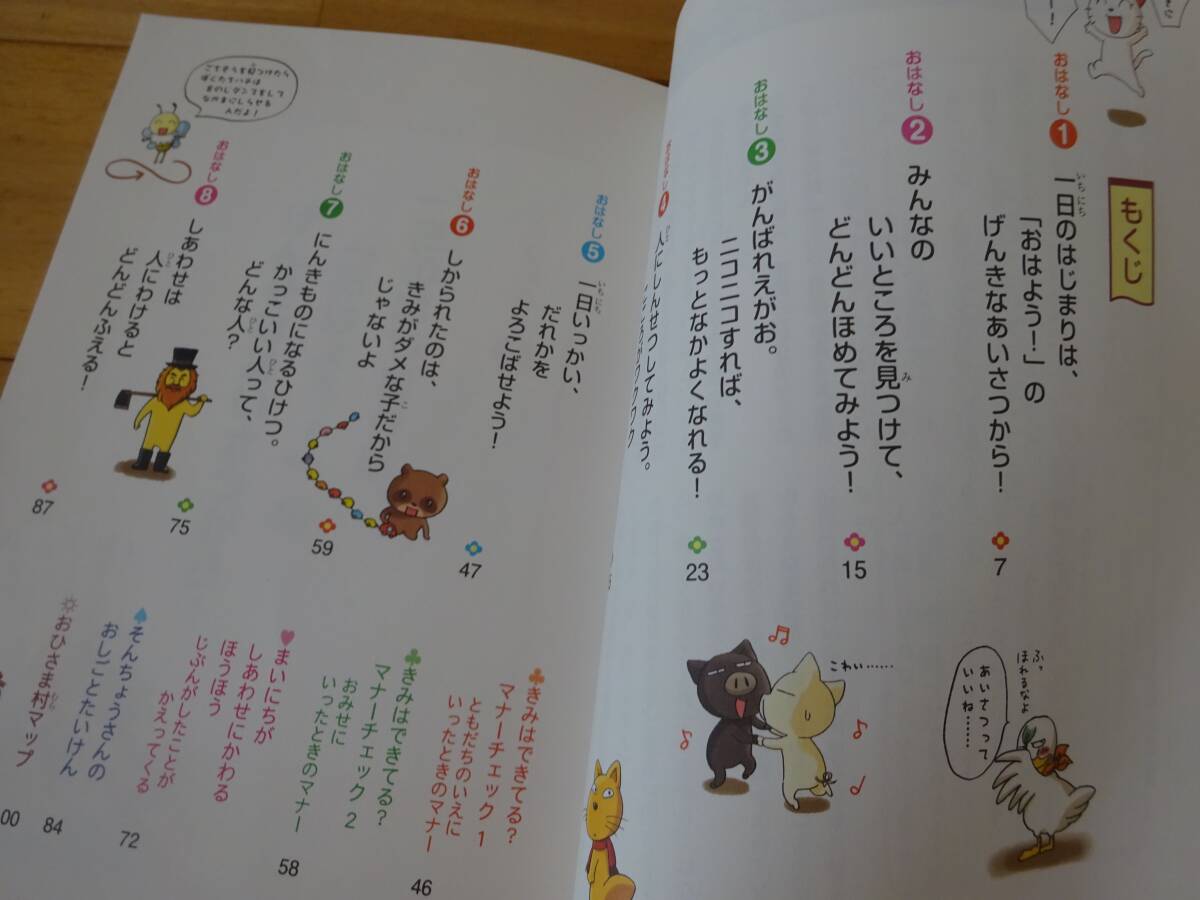 もくじ
おはなし 1
一日のはじまりは、
いちにち
「おはよう！」の
げんきなあいさつから！
7
おはなし 2
みんなの
いいところを見つけて、
み
どんどんほめてみよう！
15
おはなし 3
がんばれえがお。
ニコニコすれば、
もっとなかよくなれる！
23
おはなし 4
人にしんせつしてみよう。
ひと
ふっ
ほれるなよ
あいさつって
いいね……
こわい……
おはなし 5
一日いっかい、
いちにち
だれかを
よろこばせよう！
47
おはなし 6
しかられたのは、
きみがダメな子だから
こ
じゃないよ
59
おはなし 7
にんきものになるひけつ。
かっこいい人って、
ひと
どんな人？
ひと
75
おはなし 8
しあわせは
人にわけると
ひと
どんどんふえる！
87
ごちそうを見つけたら
ぼくたちハチは
8のじダンスをして
なかまにしらせる
んだよ！
きみはできてる？
マナーチェック 1
ともだちのいえに
いったときのマナー
46
きみはできてる？
マナーチェック 2
おみせに
いったときのマナー
58
まいにちが
しあわせにかわる
ほうほう
じぶんがしたことが
かえってくる
72
そんちょうさんの
おしごとたいけん
84
おひさま村マップ
むら
00